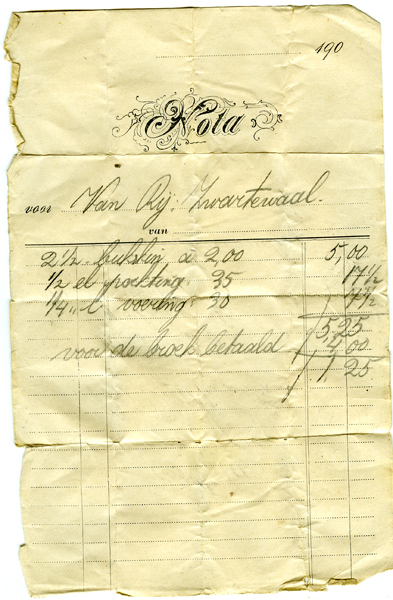 190
Nota
voor Van Rij. Zwartewaal.
van
2 1/2 bukskin a 2 00 5,00
1/2 el pochting 35 17 1/2
1/4 " voering 30 7 1/2
5,25
voor de broek betaald 4,00
1,25